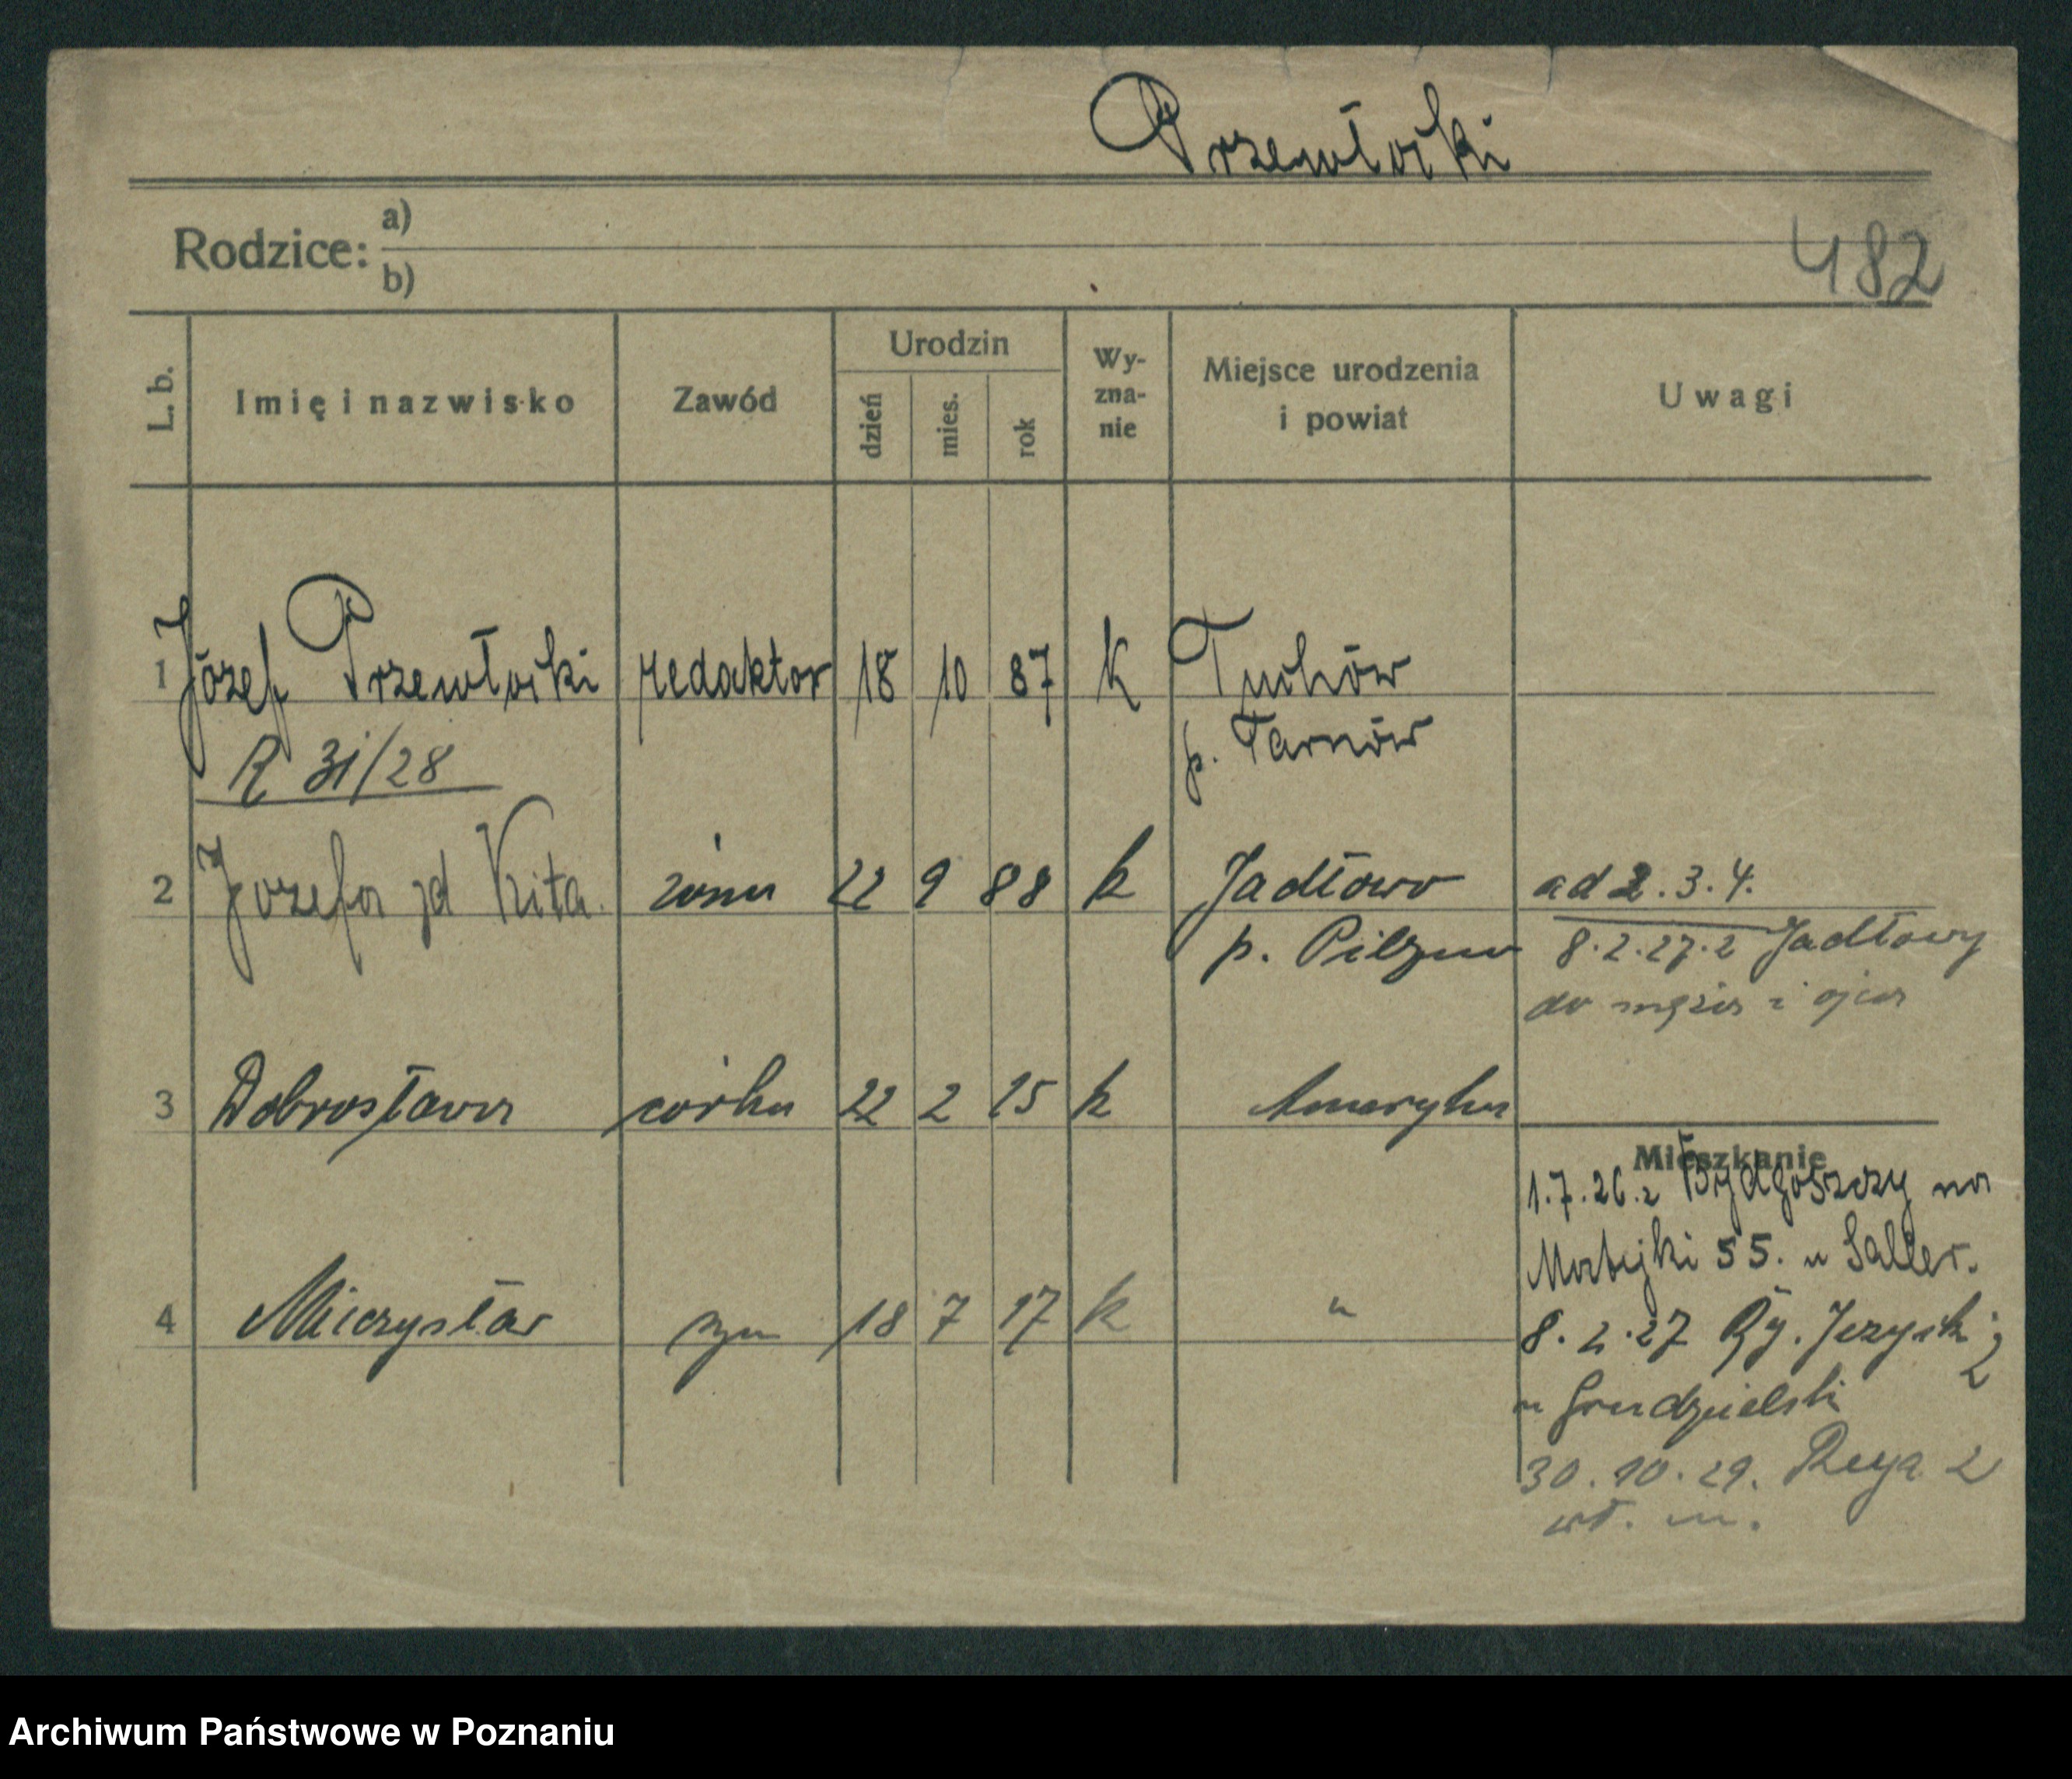 Przewłocki
Rodzice: a)
b)
482
L. b.
Imię i nazwisko
Zawód
Urodzin
dzień
mies.
rok
Wy-
zna-
nie
Miejsce urodzenia
i powiat
Uwagi
1 Józef Przewłocki redaktor 18 10 87 K Tuchów
p. Tarnów
R 31/28
2 Józefa zd Kita. żona 22 9 88 k Jadłowo ad 2. 3. 4.
p. Pilzno 8.2.27. z Jadłowy
do męża i ojca
3 Dobrosława córka 22 2 15 k Ameryka
Mieszkanie
1.7.26. z Bydgoszczy na
Matejki 55. u Saller.
4 Mieczysław syn 18 7 17 k "
8.2.27 Ry. Jezycki 2
u Grudzielski
30.10.29. Reya 2
wł. m.
Archiwum Państwowe w Poznaniu